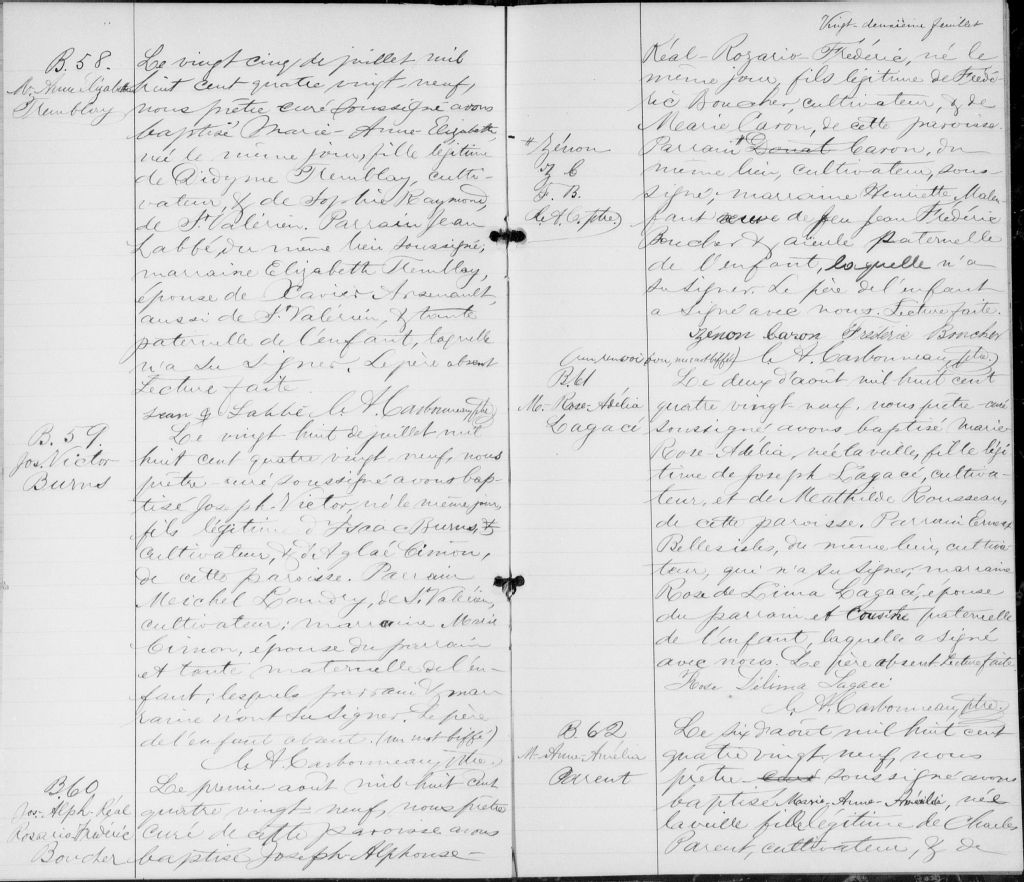 B. 58.
M. Anne Elizabeth
Tremblay
Le vingt cinq de juillet mil
huit cent quatre vingt-neuf,
nous prêtre curé soussigné avons
baptisé Marie-Anne-Elizabeth,
née le même jour, fille légitime
de Didyme Tremblay, culti-
vateur, & de Sophie Raymond,
de St Valérien. Parrain Jean
Labbé, du même lieu soussigné;
marraine Elizabeth Tremblay,
épouse de Xavier Arsenault,
aussi de St Valérien, & tante
paternelle de l'enfant, laquelle
n'a su signer. Le père absent
Lecture faite.
Jean Labbé L. A. Carbonneau, ptre
B. 59.
Jos. Victor
Burns
Le vingt huit de juillet mil
huit cent quatre vingt-neuf, nous
prêtre-curé soussigné avons bap-
tisé Joseph-Victor, né le même jour,
fils légitime d'Isaac Burns,
cultivateur, & d'Aglaé Cimon,
de cette paroisse. Parrain
Michel Landry, de St Valérien,
cultivateur; marraine Marie
Cimon, épouse du parrain
et tante maternelle de l'en-
fant; lesquels parrain & mar-
raine n'ont su signer. Le père
de l'enfant absent. (un mot biffé)
L. A. Carbonneau, ptre.
B 60
Jos-Alph-Réal
Rosario-Frédéric
Boucher
Le premier août mil huit cent
quatre vingt-neuf, nous prêtre
curé de cette paroisse avons
baptisé Joseph-Alphonse-
Vingt-deuxième feuillet
Réal-Rozario-Frédéric, né le
même jour, fils légitime de Frédé-
ric Boucher, cultivateur, & de
Marie Caron, de cette paroisse.
Parrain # Donat Caron, du
même lieu, cultivateur, sous-
signé; marraine Henriette Malen-
fant veuve de feu Jean Frédéric
Boucher & aïeule paternelle
de l'enfant, laquelle n'a
su signer. Le père de l'enfant
a signé avec nous. Lecture faite.
# Zénon
Z C
F. B.
L. A. C. ptre.
Zénon Caron Fréderic Boucher
(un renvoi bon, un mot biffé) L. A. Carbonneau, ptre.
B. 61
M. Rose-Adélia
Lagacé
Le deux d'août mil huit cent
quatre vingt-neuf, nous prêtre-curé
soussigné avons baptisé Marie
Rose-Adélia, née la veille, fille légi-
time de Joseph Lagacé, cultiva-
teur, et de Mathilde Rousseau,
de cette paroisse. Parrain Ernest
Bellesisles, du même lieu, cultiva-
teur, qui n'a su signer, marraine
Rose de Lima Lagacé, épouse
du parrain et cousine paternelle
de l'enfant, laquelle a signé
avec nous. Le père absent Lecture faite.
Rose Délima Lagacé
L. A. Carbonneau, ptre.
B. 62
M-Anne-Aurélia
Parent
Le six d'août mil huit cent
quatre vingt-neuf, nous
prêtre-curé soussigné avons
baptisé Marie-Anne-, née
la veille fille légitime de Charles
Parent, cultivateur, & de